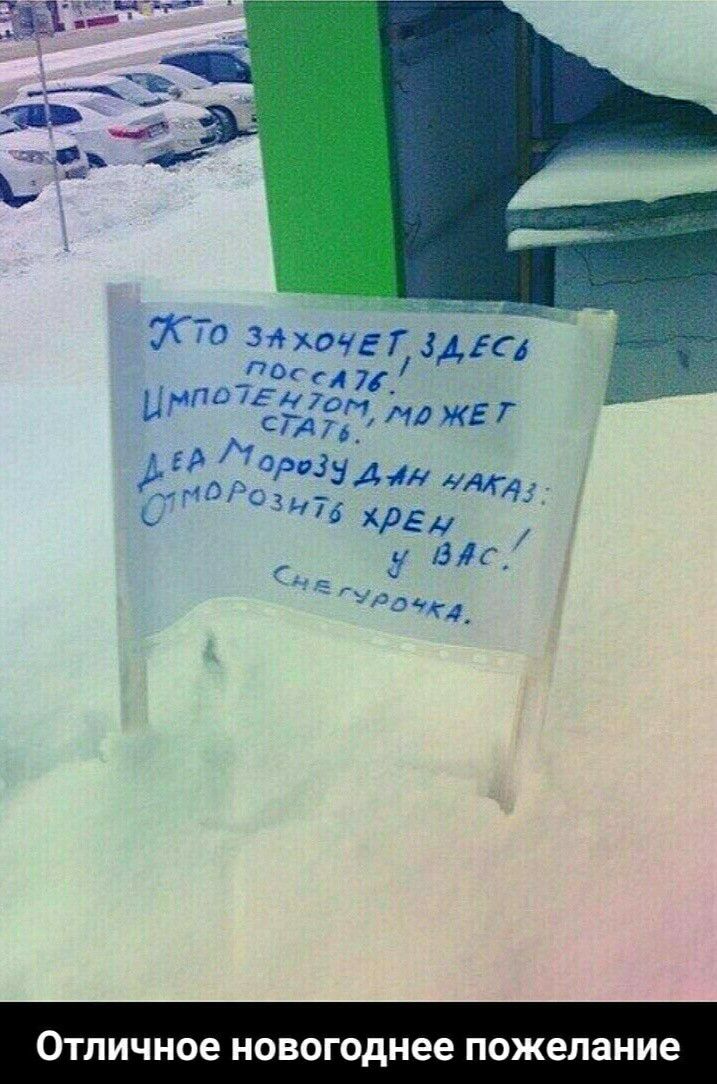 Кто захочет, здесь
поссать!
Импотентом, может
стать.
Дед Морозу дан наказ:
Отморозить хрен
у вас!
Снегурочка.
Отличное новогоднее пожелание